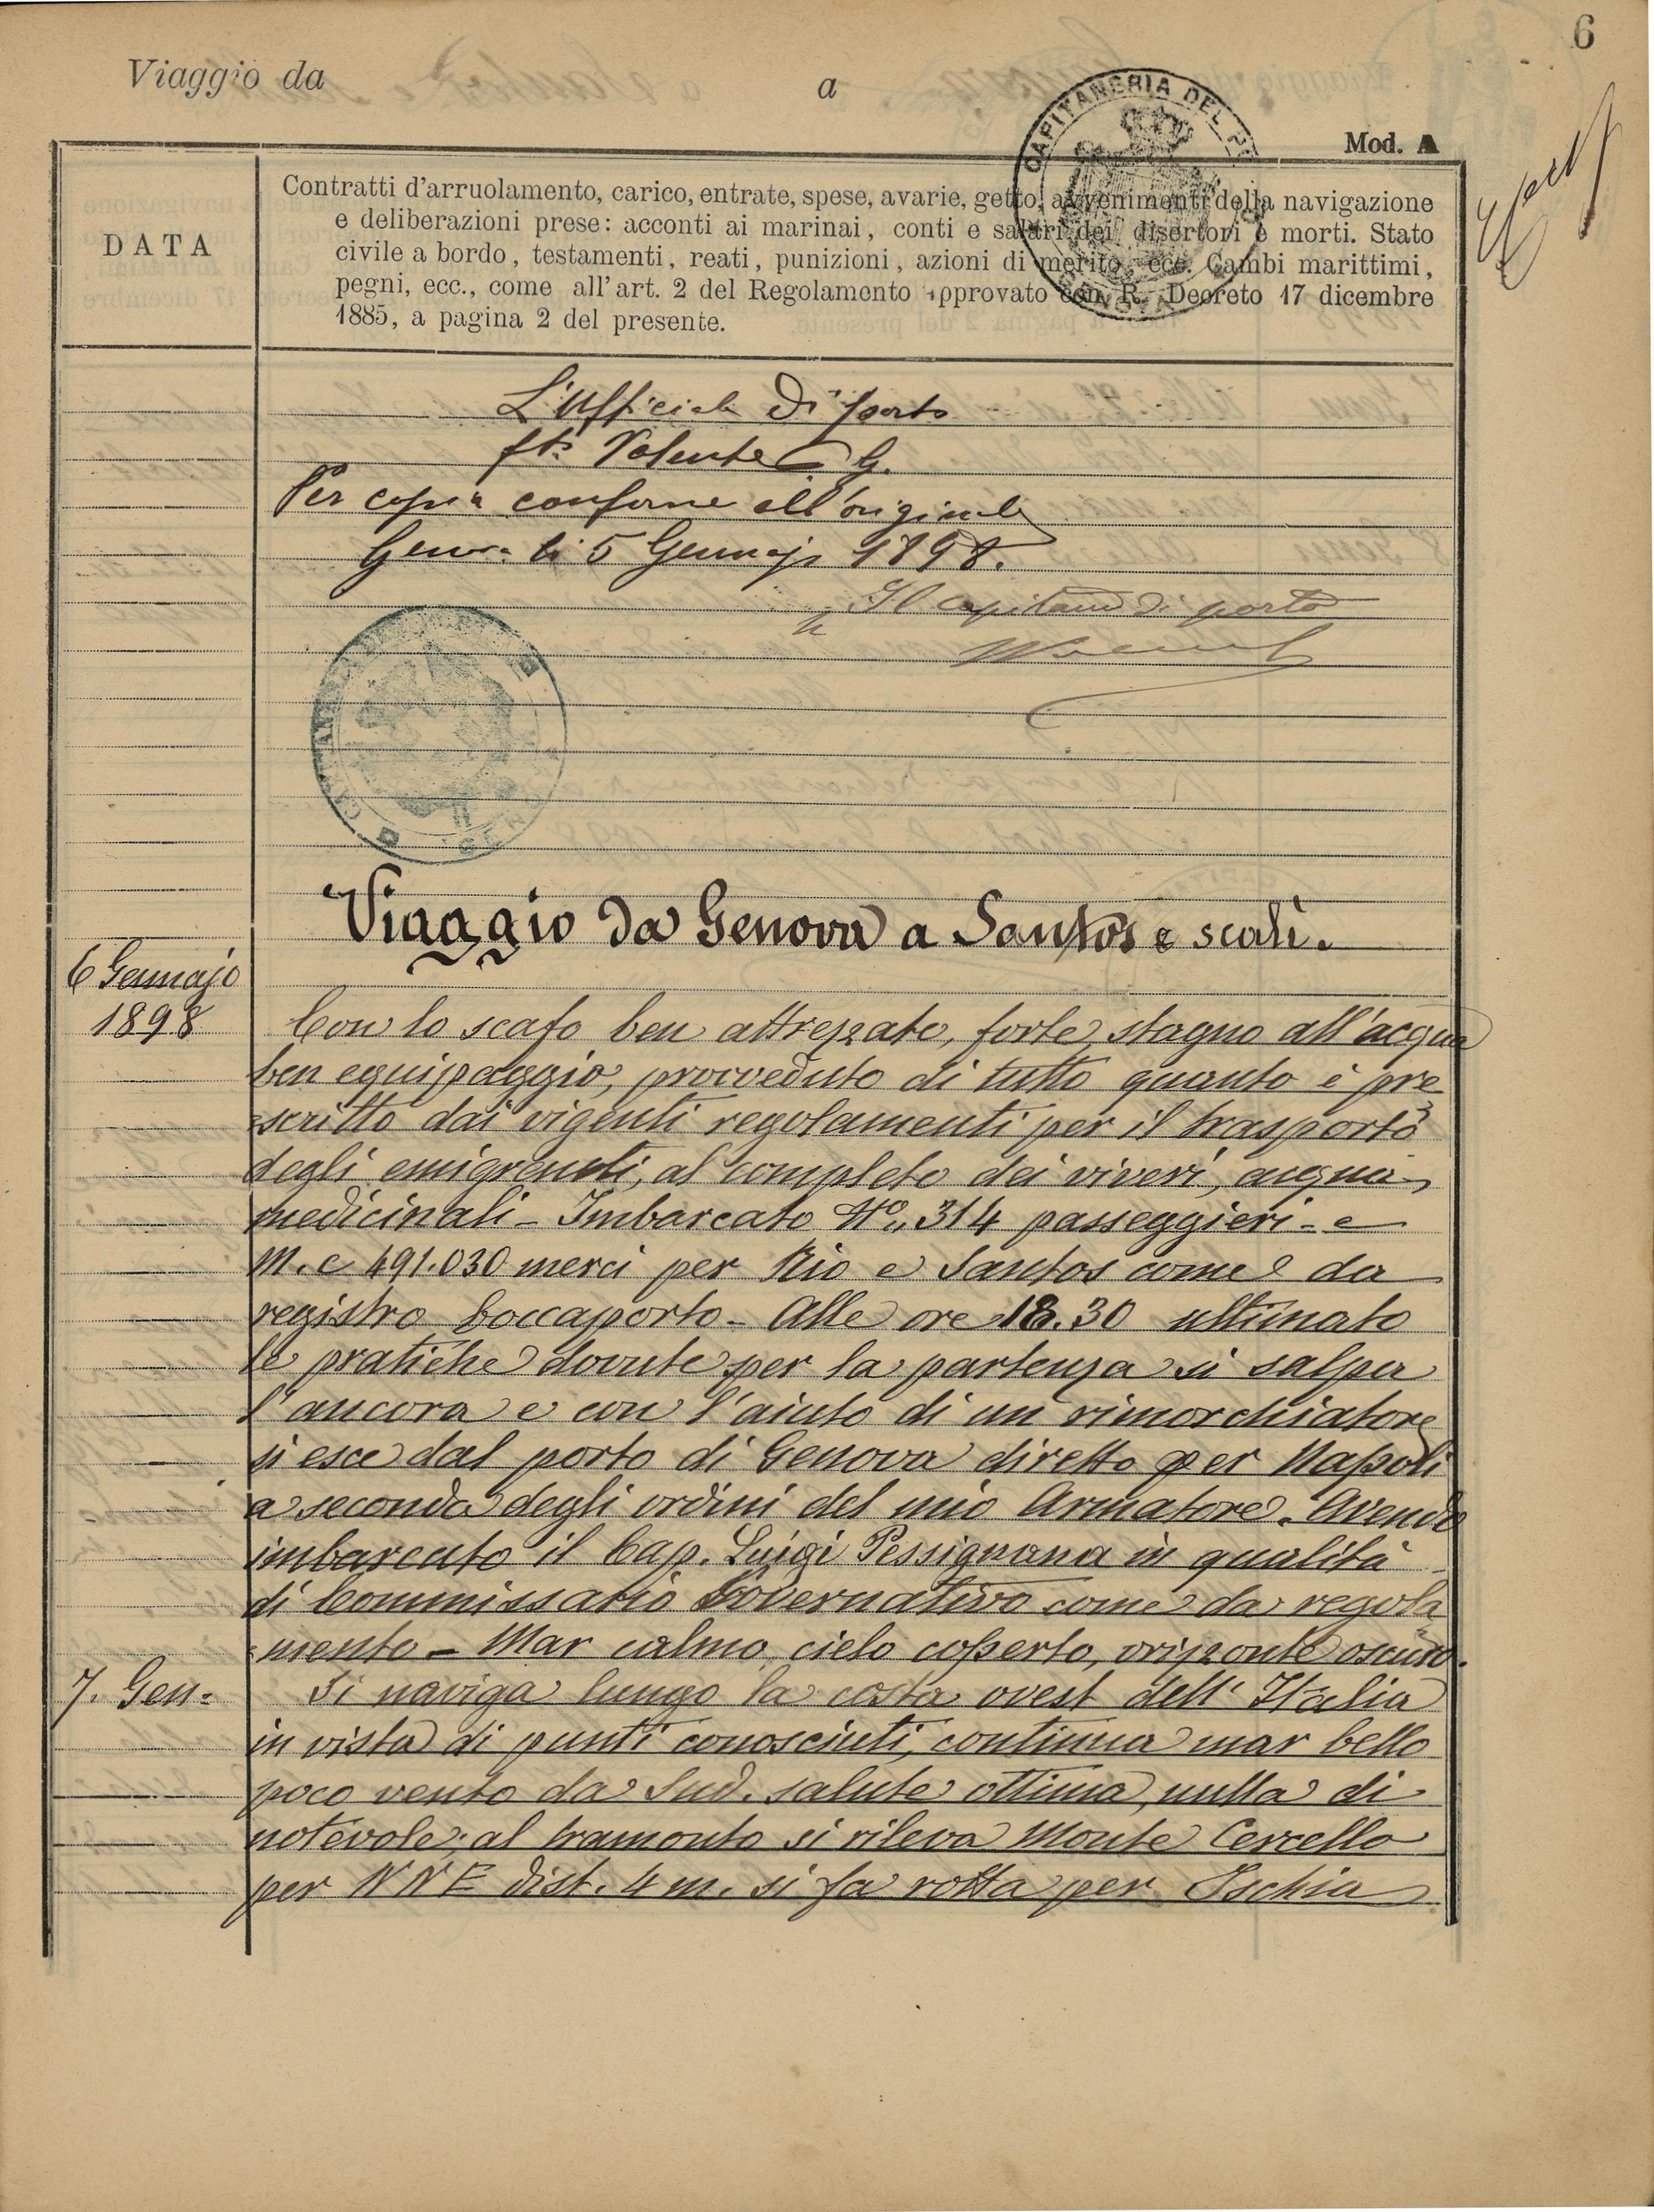 6
Viaggio da a
CAPITANERIA DEL PO
Mod. A
DATA
Contratti d'arruolamento, carico, entrate, spese, avarie, getto, avvenimenti della navigazione
e deliberazioni prese: acconti ai marinai, conti e salari dei disertori e morti. Stato
civile a bordo, testamenti, reati, punizioni, azioni di merito, ecc. Cambi marittimi,
pegni, ecc., come all'art. 2 del Regolamento approvato con R. Decreto 17 dicembre
1885, a pagina 2 del presente.
L'Ufficiale di porto
fto Valente G.
Per copia conforme all'originale
Genova li 5 Gennajo 1898.
Il Capitano di porto
Viaggio da Genova a Santos e scali.
6 Gennajo
1898 Con lo scafo ben attrezzato, forte, stagno all'acqua
ben equipaggio, provveduto di tutto quanto è pre
scritto dai vigenti regolamenti per il trasporto
degli emigranti, al completo dei viveri, acqua,
medicinali - Imbarcato No. 314 passeggieri - e
M.c 491.030 merci per Rio e Santos come da
registro boccaporto - Alle ore 18.30 ultimato
le pratiche dovute per la partenza si salpa
l'ancora e con l'aiuto di un rimorchiatore
si esce dal porto di Genova diretto per Napoli
a seconda degli ordini del mio Armatore. Avendo
imbarcato il Cap. Luigi Pessignana in qualità
di Commissario Governativo come da regola
mento - Mar calmo, cielo coperto, orizzonte oscuro.
7. Gen= Si naviga lungo la costa ovest dell'Italia
in vista di punti conosciuti, continua mar bello
poco vento da Sud. salute ottima, nulla di
notevole; al tramonto si rileva Monte Cercello
per NNE dist. 4 m. si fa rotta per Ischia